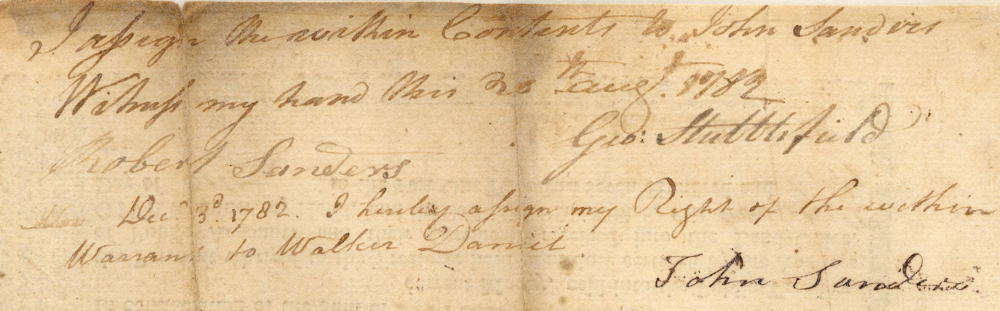 I assign the within Contents to John Sanders
Witness my hand this 20th augt. 1782
Geo: Stubblefield
Robert Sanders
Decr 3d. 1782. I hereby assign my Right of the within
Warrant to Walker Daniel
John Sanders